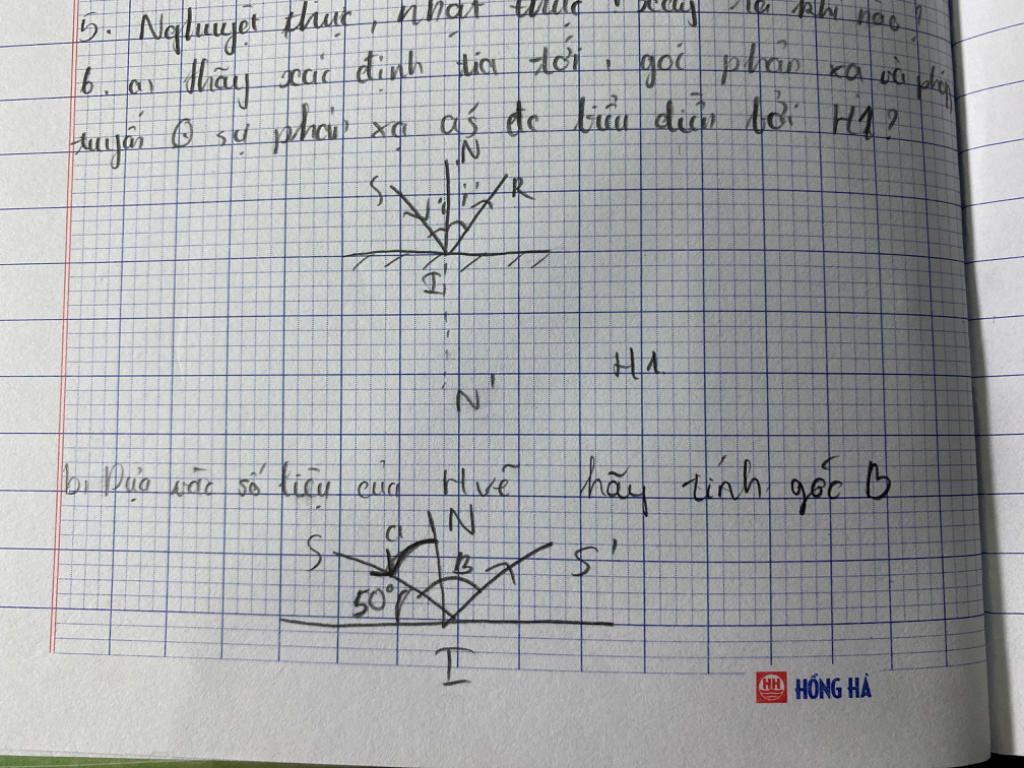 5. Nguyệt thực, nhật thực xảy ra khi nào?
6. a, Hãy xác định tia tới, góc phản xạ và pháp
tuyến ⊕ sự phản xạ aś đc biểu diễn bởi H1?
N
S i i' R
I
H1
N'
b, Dựa vào số liệu của H vẽ hãy tính góc B
N
S a B S'
50°
I
HH HỒNG HÀ